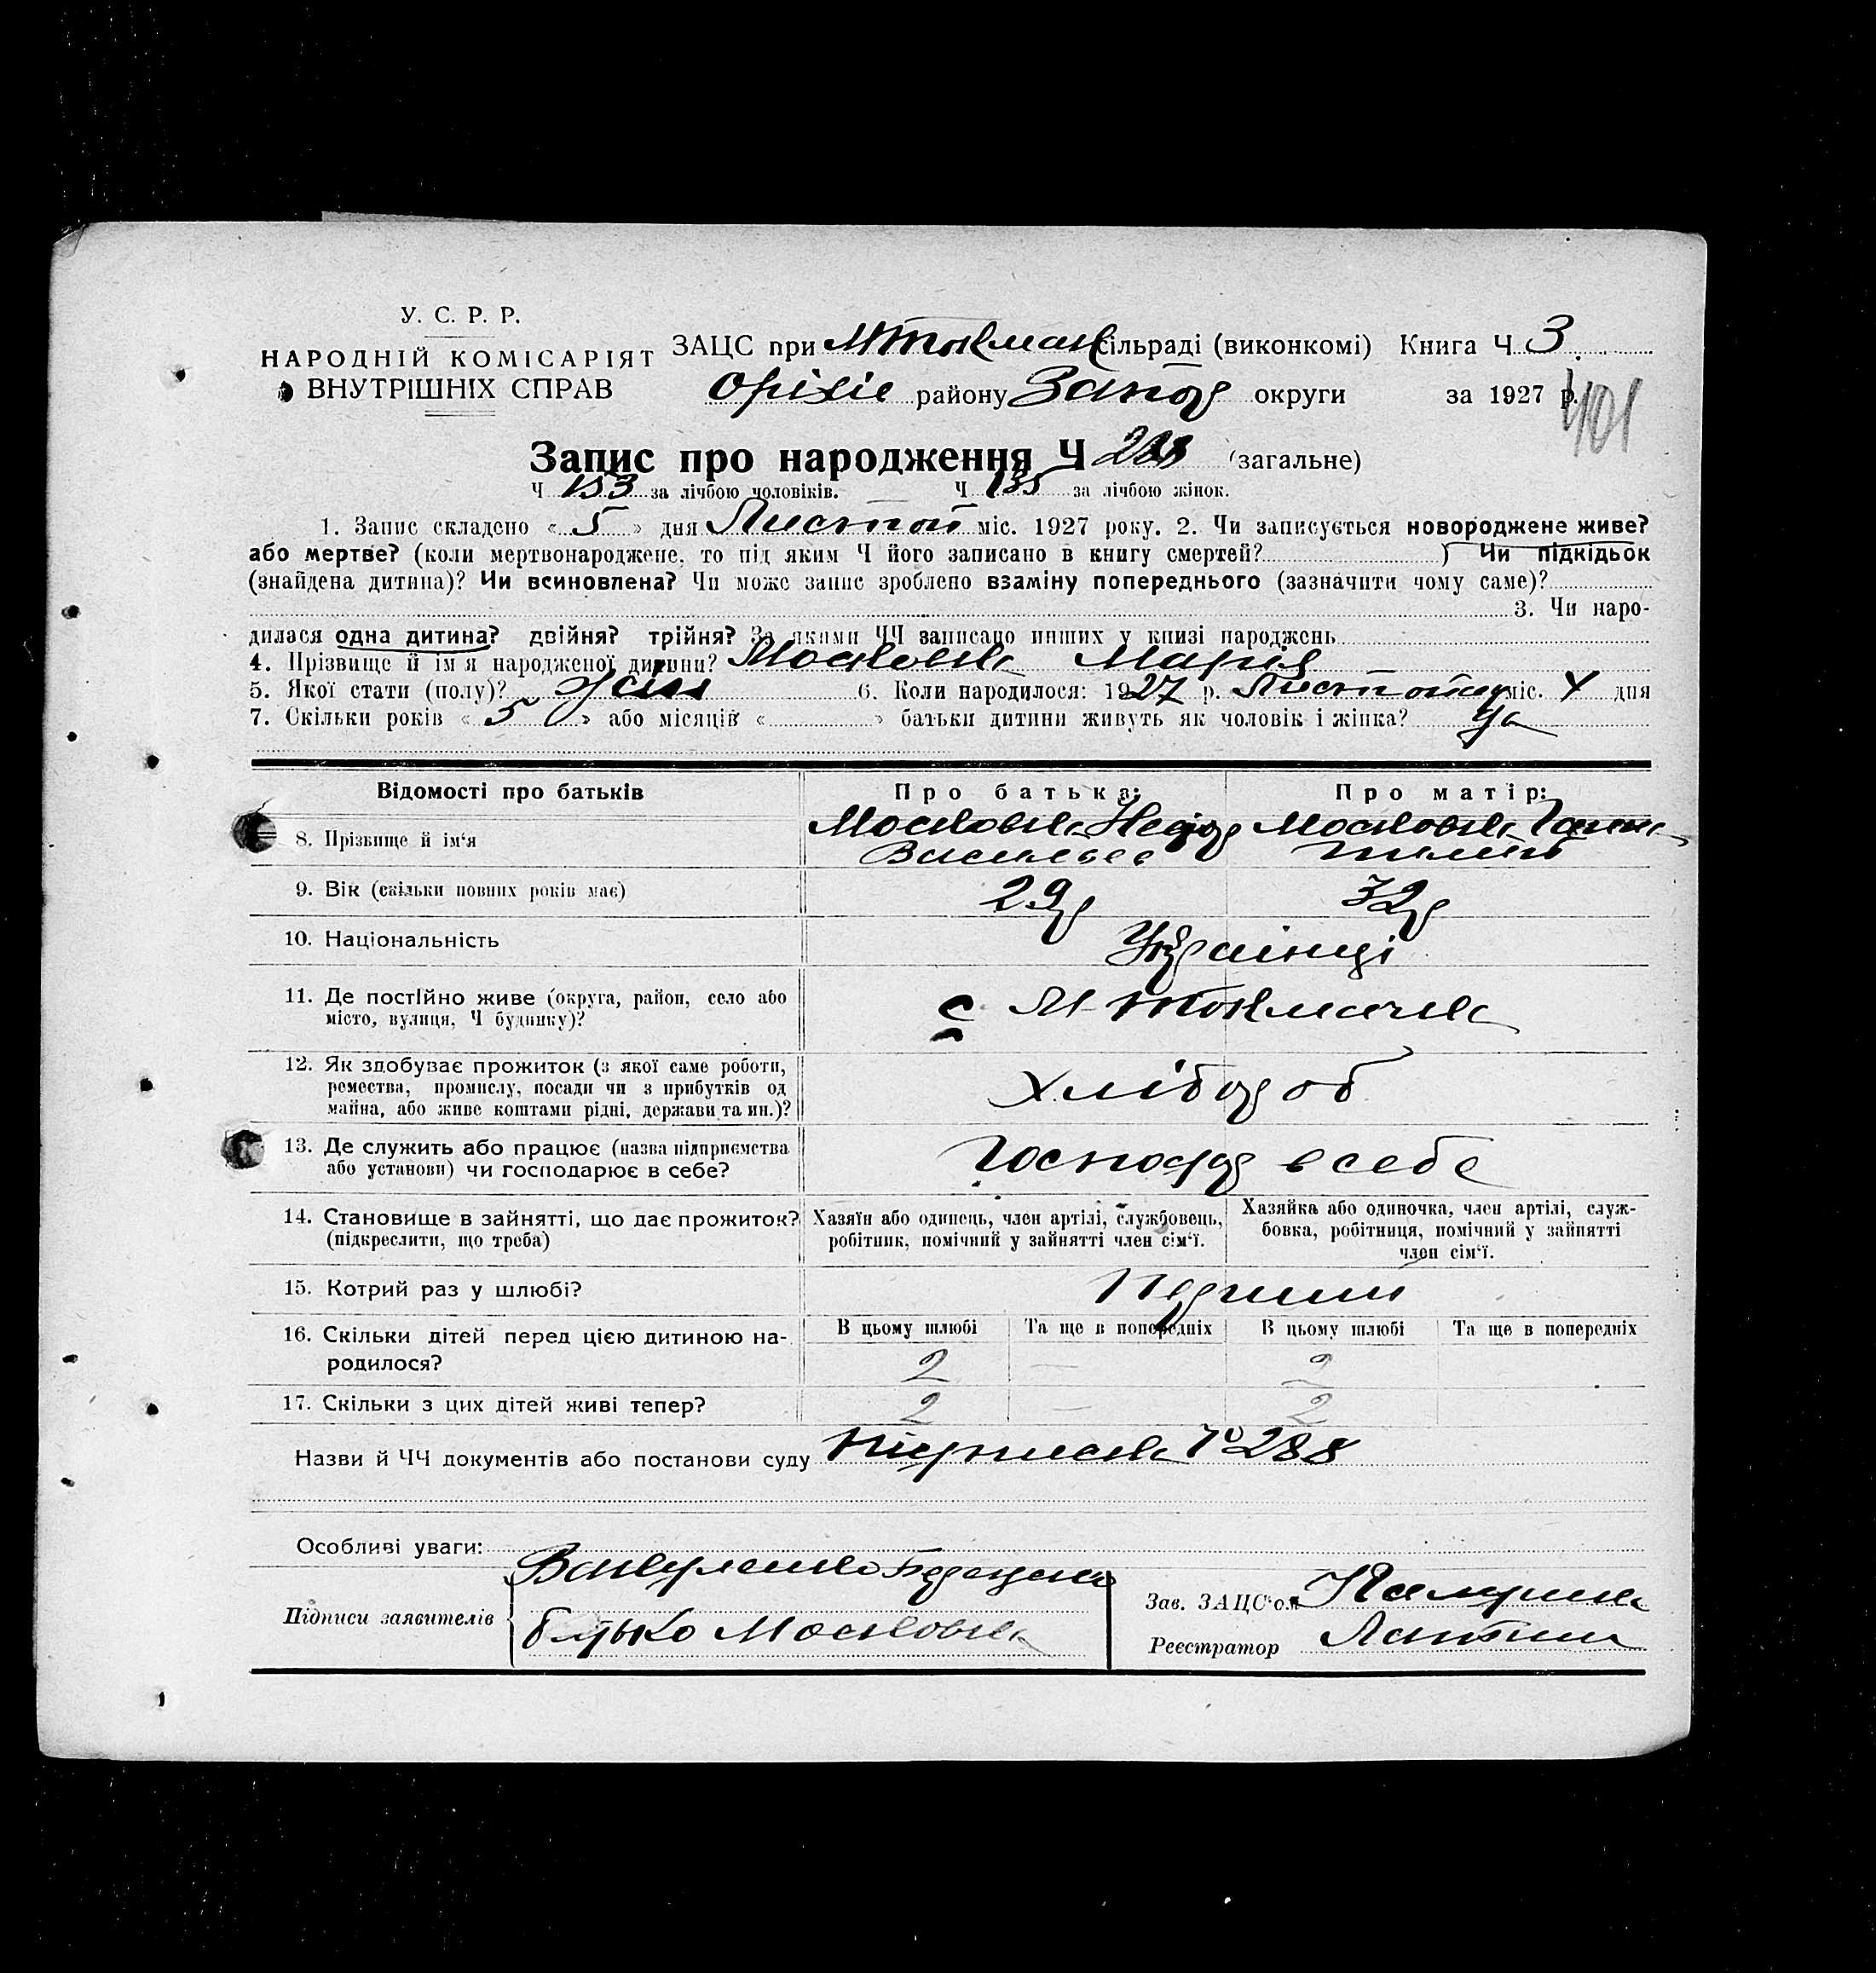 У. С. Р. Р.
НАРОДНІЙ КОМІСАРІЯТ
ВНУТРІШНІХ СПРАВ
ЗАЦС при М Токмак сільраді (виконкомі) Книга Ч 3
Оріхів району Запор округи за 1927 р.
401
Запис про народження Ч 288 (загальне)
Ч 153 за лічбою чоловіків. Ч 135 за лічбою жінок.
1. Запис складено « 5 » дня Листоп міс. 1927 року. 2. Чи записується новороджене живе?
або мертве? (коли мертвонароджене, то під яким Ч його записано в книгу смертей? ) Чи підкідьок
(знайдена дитина)? Чи всиновлена? Чи може запис зроблено взаміну попереднього (зазначити чому саме)?
3. Чи наро-
дилася одна дитина? двійня? трійня? За якими ЧЧ записано инших у книзі народжень
4. Прізвище й ім'я народженої дитини? Московка Марія
5. Якої стати (полу)? 6. Коли народилося: 1927 р. Листопад міс. 4 дня
7. Скільки років « 5 » або місяців « » батьки дитини живуть як чоловік і жінка? Да
Відомості про батьків Про батька: Про матір:
8. Прізвище й ім'я Московка Московка Ганна
9. Вік (скільки повних років має) 29 р 32 р
10. Національність Українці
11. Де постійно живе (округа, район, село або
місто, вулиця, Ч будинку)? с М-Токмачка
12. Як здобуває прожиток (з якої саме роботи,
ремества, промислу, посади чи з прибутків од
майна, або живе коштами рідні, держави та ин.)? Хлібороб
13. Де служить або працює (назва підприємства
або установи) чи господарює в себе? Господар в себе
14. Становище в зайнятті, що дає прожиток?
(підкреслити, що треба)
Хазяїн або одинець, член артілі, службовець,
робітник, помічний у зайнятті член сім'ї.
Хазяйка або одиночка, член артілі, служ-
бовка, робітниця, помічний у зайнятті
член сім'ї.
15. Котрий раз у шлюбі? Перший
16. Скільки дітей перед цією дитиною на-
родилося?
В цьому шлюбі Та ще в попередніх В цьому шлюбі Та ще в попередніх
2 — 2
17. Скільки з цих дітей живі тепер? 2 — 2
Назви й ЧЧ документів або постанови суду № 288
Особливі уваги:
Підписи заявителів
батько Московка
Зав. ЗАЦС'ом
Реєстратор